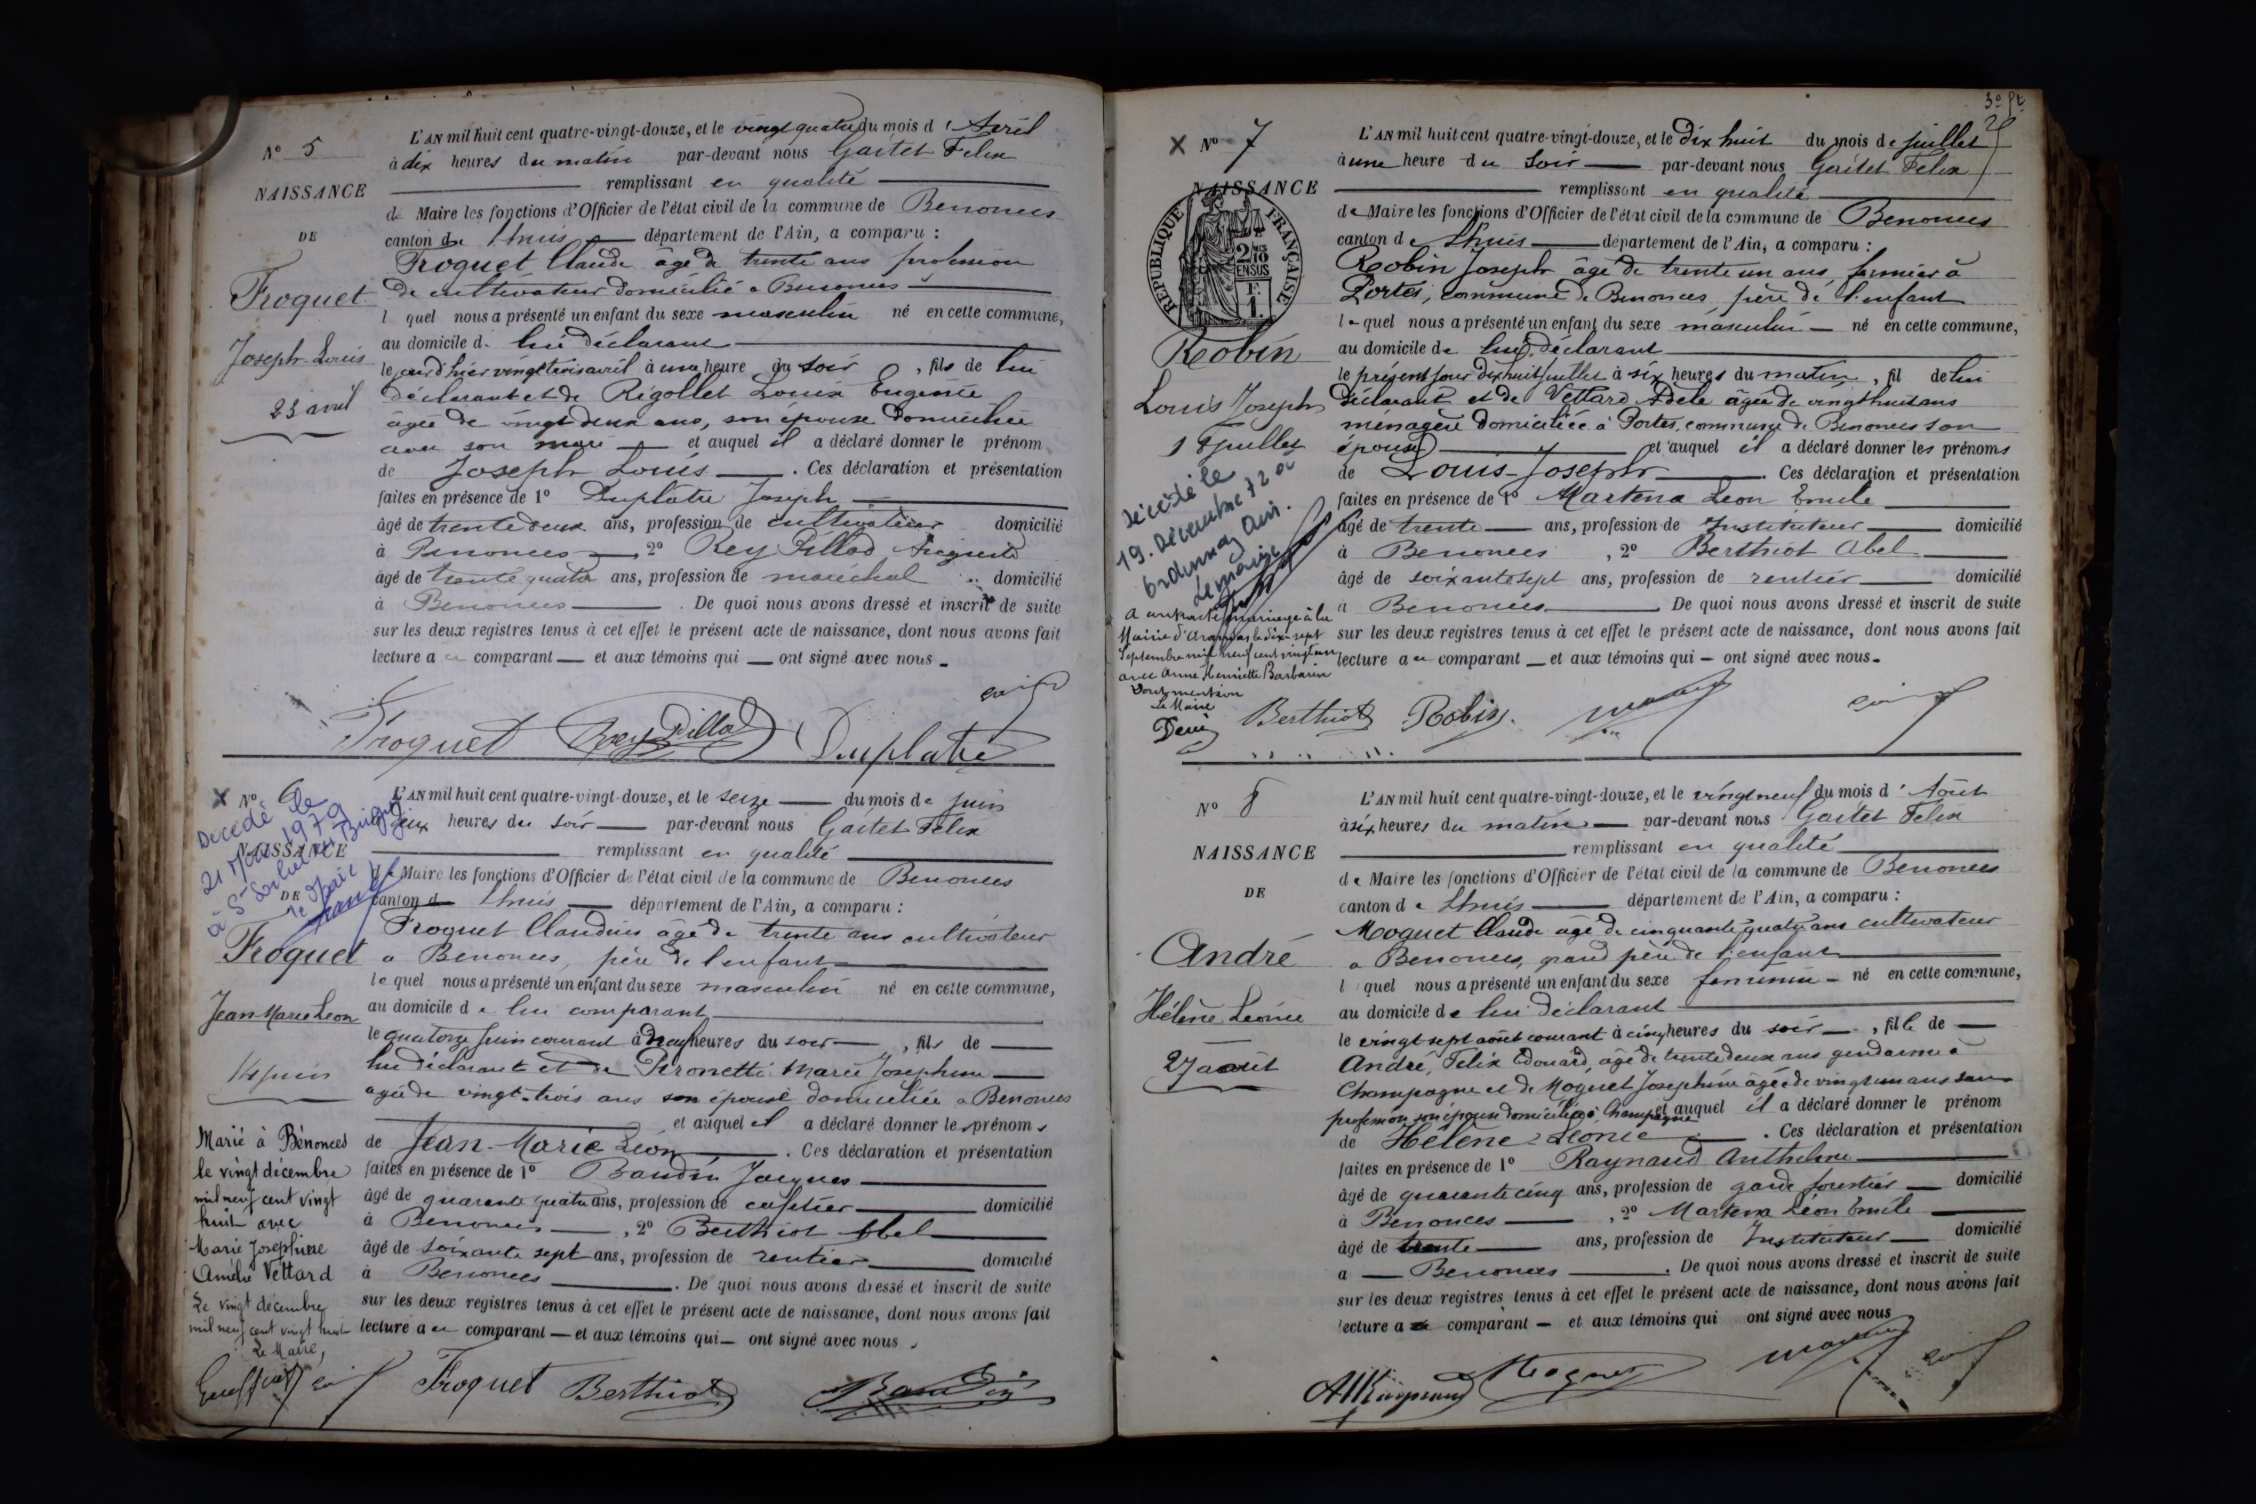 N° 5
NAISSANCE
DE
Froquet
Joseph-Louis
23 avril
L'AN mil huit cent quatre-vingt-douze, et le vingt quatre du mois d'Avril
à dix heures du matin par-devant nous Gaitet Felix
remplissant en qualité
de Maire les fonctions d'Officier de l'état civil de la commune de Benonces
canton de Lhuis département de l'Ain, a comparu :
Froquet Claude âgé de trente ans profession
de cultivateur domicilié a Benonces
lequel nous a présenté un enfant du sexe masculin né en cette commune,
au domicile de lui déclarant
le jourd'hier vingt trois avril à une heure du soir, fils de lui
déclarant et de Rigollet Louise Eugénie
âgée de vingt deux ans, son épouse domiciliée
avec son mari et auquel il a déclaré donner le prénom
de Joseph Louis. Ces déclaration et présentation
faites en présence de 1° Duplatre Joseph
âgé de trente deux ans, profession de cultivateur domicilié
à Benonces 2° Rey Pillod
âgé de trente quatre ans, profession de maréchal domicilié
à Benonces. De quoi nous avons dressé et inscrit de suite
sur les deux registres tenus à cet effet le présent acte de naissance, dont nous avons fait
lecture au comparant et aux témoins qui ont signé avec nous.
Froquet Rey Pillod Duplatre
N° 6
Décédé le
21 1979
à St Sorlin en Bugey
NAISSANCE
DE
Froquet
Jean Marie Leon
14 juin
Marié à Bénonces
le vingt décembre
mil neuf cent vingt
huit avec
Marie Josephine
Amélie Vettard
Le vingt décembre
mil neuf cent vingt huit
Le Maire,
L'AN mil huit cent quatre-vingt-douze, et le seize du mois de juin
à deux heures du soir par-devant nous Gaitet Felix
remplissant en qualité
de Maire les fonctions d'Officier de l'état civil de la commune de Benonces
canton de Lhuis département de l'Ain, a comparu :
Froquet Claudius âgé de trente ans cultivateur
a Benonces, père de l'enfant
lequel nous a présenté un enfant du sexe masculin né en cette commune,
au domicile de lui comparant
le quatorze juin courant à heures du soir, fils de
lui déclarant et de Pironetti Marie Josephine
agée de vingt-trois ans son épouse domiciliée a Benonces
et auquel il a déclaré donner les prénoms
de Jean-Marie Léon. Ces déclaration et présentation
faites en présence de 1° Baudin Jacques
âgé de quarante quatre ans, profession de cafetier domicilié
à Benonces, 2° Berthiot Abel
âgé de soixante sept ans, profession de rentier domicilié
à Benonces. De quoi nous avons dressé et inscrit de suite
sur les deux registres tenus à cet effet le présent acte de naissance, dont nous avons fait
lecture au comparant — et aux témoins qui — ont signé avec nous.
Froquet Berthiot Baudin
N° 7
NAISSANCE
RÉPUBLIQUE FRANÇAISE
2/10 EN SUS
1 F.
Robin
Louis Joseph
18 juillet
Décédé le
19. Décembre 72 a
Ordonnaz Ain.
Le maire
A contracté mariage à la
Mairie d'Arandas le dix-sept
Septembre mil neuf cent vingt un
avec Anne Henriette Barbarin
Dont mention
Le Maire
L'AN mil huit cent quatre-vingt-douze, et le dix huit du mois de juillet
à une heure du soir par-devant nous Gaitet Felix
remplissant en qualité
de Maire les fonctions d'Officier de l'état civil de la commune de Benonces
canton de Lhuis département de l'Ain, a comparu :
Robin Joseph âgé de trente un ans, fermier à
Portes, commune de Benonces père de l'enfant
lequel nous a présenté un enfant du sexe masculin — né en cette commune,
au domicile de lui déclarant
le présent jour dix huit juillet à six heures du matin, fil de lui
déclarant et de Vettard Adèle âgée de vingt huit ans
ménagère domiciliée à Portes, commune de Benonces son
épouse et auquel il a déclaré donner les prénoms
de Louis-Joseph. Ces déclaration et présentation
faites en présence de 1° Martena Leon Emile
âgé de trente ans, profession de Instituteur domicilié
à Benonces, 2° Berthiot Abel
âgé de soixante sept ans, profession de rentier domicilié
à Benonces. De quoi nous avons dressé et inscrit de suite
sur les deux registres tenus à cet effet le présent acte de naissance, dont nous avons fait
lecture au comparant — et aux témoins qui — ont signé avec nous.
Berthiot Robin
N° 8
NAISSANCE
DE
André
Hélène Léonie
27 aout
L'AN mil huit cent quatre-vingt-douze, et le vingt neuf du mois d'Août
à six heures du matin par-devant nous Gaitet Felix
remplissant en qualité
de Maire les fonctions d'Officier de l'état civil de la commune de Benonces
canton de Lhuis département de l'Ain, a comparu :
Moquet Claude âgé de cinquante quatre ans cultivateur
a Benonces, grand père de l'enfant
lequel nous a présenté un enfant du sexe feminin — né en cette commune,
au domicile de lui déclarant
le vingt sept août courant à cinq heures du soir, fille de
André, Felix Edouard, âgé de trente deux ans gendarme à
Champagne et de Moquet Josephine âgée de vingt un ans sans
profession son épouse domiciliée à Champagne et auquel il a déclaré donner le prénom
de Hélène Léonie. Ces déclaration et présentation
faites en présence de 1° Raynaud Anthelme
âgé de quarante cinq ans, profession de garde forestier domicilié
à Benonces, 2° Martena Léon Emile
âgé de trente ans, profession de Instituteur domicilié
a Benonces. De quoi nous avons dressé et inscrit de suite
sur les deux registres tenus à cet effet le présent acte de naissance, dont nous avons fait
lecture au comparant — et aux témoins qui ont signé avec nous
Moquet